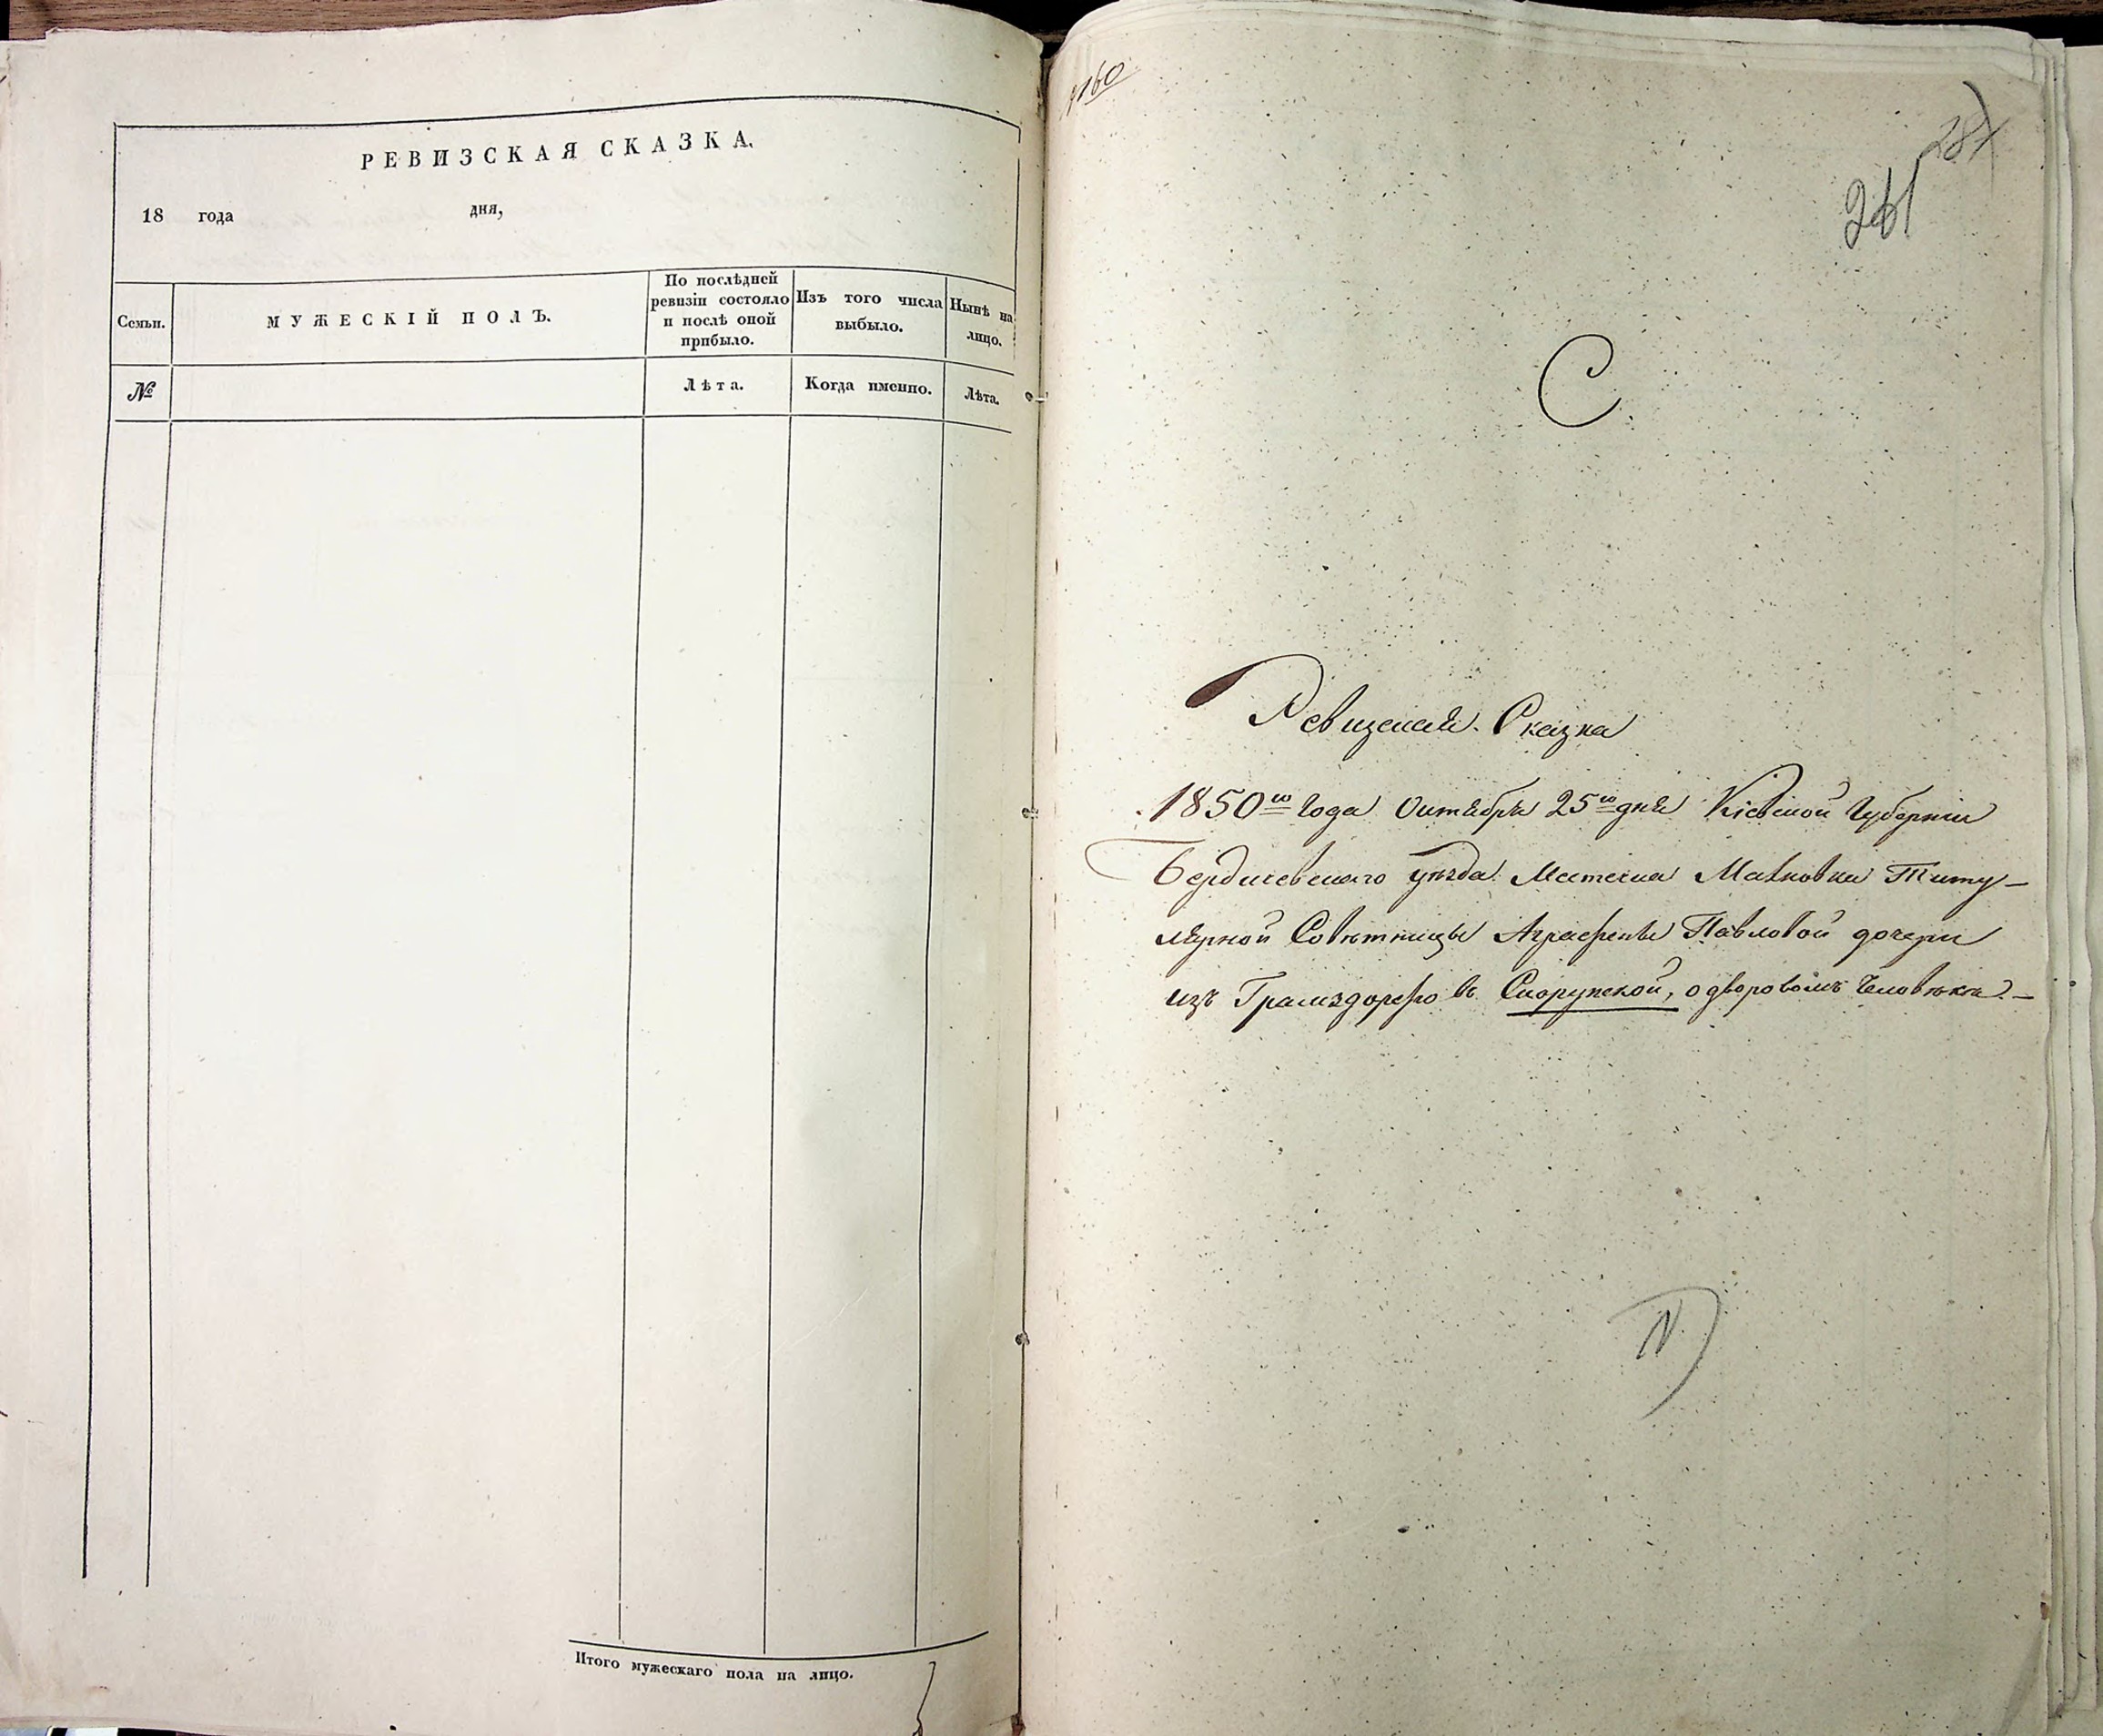 РЕВИЗСКАЯ СКАЗКА.
18 года дня,
Семьи.
МУЖЕСКІЙ ПОЛЪ.
По послѣдней
ревизіи состояло
и послѣ оной
прибыло.
Изъ того числа
выбыло.
Нынѣ на
лицо.
№
Лѣта.
Когда именно.
Лѣта.
Итого мужескаго пола на лицо.
№160
261
С.
Ревизская Сказка
1850го Года Октября 25го дня Кіевской Губерніи
Бердичевскаго уѣзда Местечка Махновки Титу-
лярной Совѣтницы Аграфены Павловой дочери
изъ в Скорупской, о дворовомъ Человѣкѣ.-